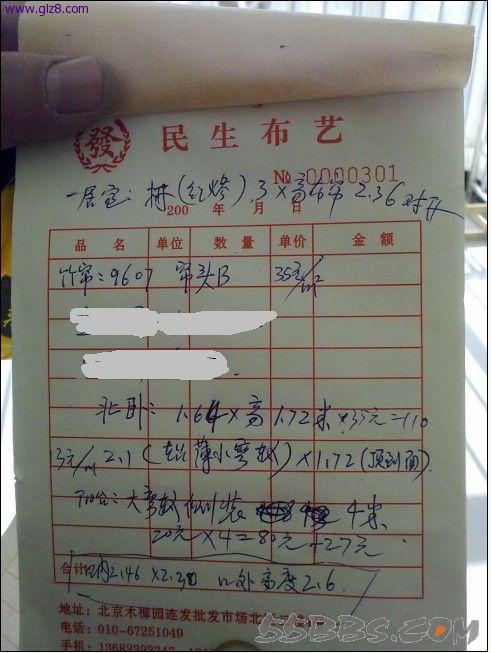 www.glz8.com
發
民生布艺
№ 0000301
一居室: 3×高 2.36 对开
200 年 月 日
品名 单位 数量 单价 金额
竹帘:9607 帘头B 35元/m²
北卧: 1.64×高1.72米×35元=110
3元/m 2.1 ( )×1.72(顶到面)
阳台:大弯轨侧装 4米
20元×4=80元+27元
合计 内2.146×2.2 高度2.6
地址:北京木樨园连发批发市场北
电话:010-67251049
手机:13683393247
55BBS.COM